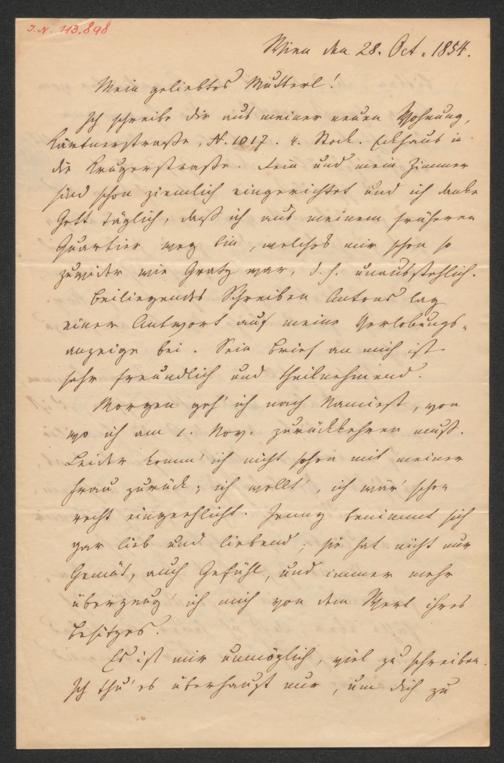 I.N. 113.898
Wien den 28. Oct. 1854.
Mein geliebtes Mutterl!
Ich schreibe dir aus meiner neuen Wohnung,
Kärtnerstraße, N. 1017. 4. Stock. Eckhaus in
die Krugerstraße. Dein und mein Zimmer
sind schon ziemlich eingerichtet und ich danke
Gott täglich, daß ich aus meinem früheren
Quartier weg bin, welches mir schon so
zuwider wie Gratz war, d. h. unausstehlich.
Beiliegendes Schreiben Antons lag
einer Antwort auf meine Verlobungs-
anzeige bei. Sein Brief an mich ist
sehr freundlich und theilnehmend.
Morgen geh' ich nach Namiest, von
wo ich am 1. Nov. zurückkehren muß.
Leider komm' ich nicht schon mit meiner
Frau zurück; ich wollt', ich wär' schon
recht eingeehlicht. Jenny benimmt sich
gar lieb und liebend; sie hat nicht nur
Gemüt, auch Gefühl, und immer mehr
überzeug' ich mich von dem Wert ihres
Besitzes.
Es ist mir unmöglich, viel zu schreiben.
Ich thu' es überhaupt nur, um dich zu